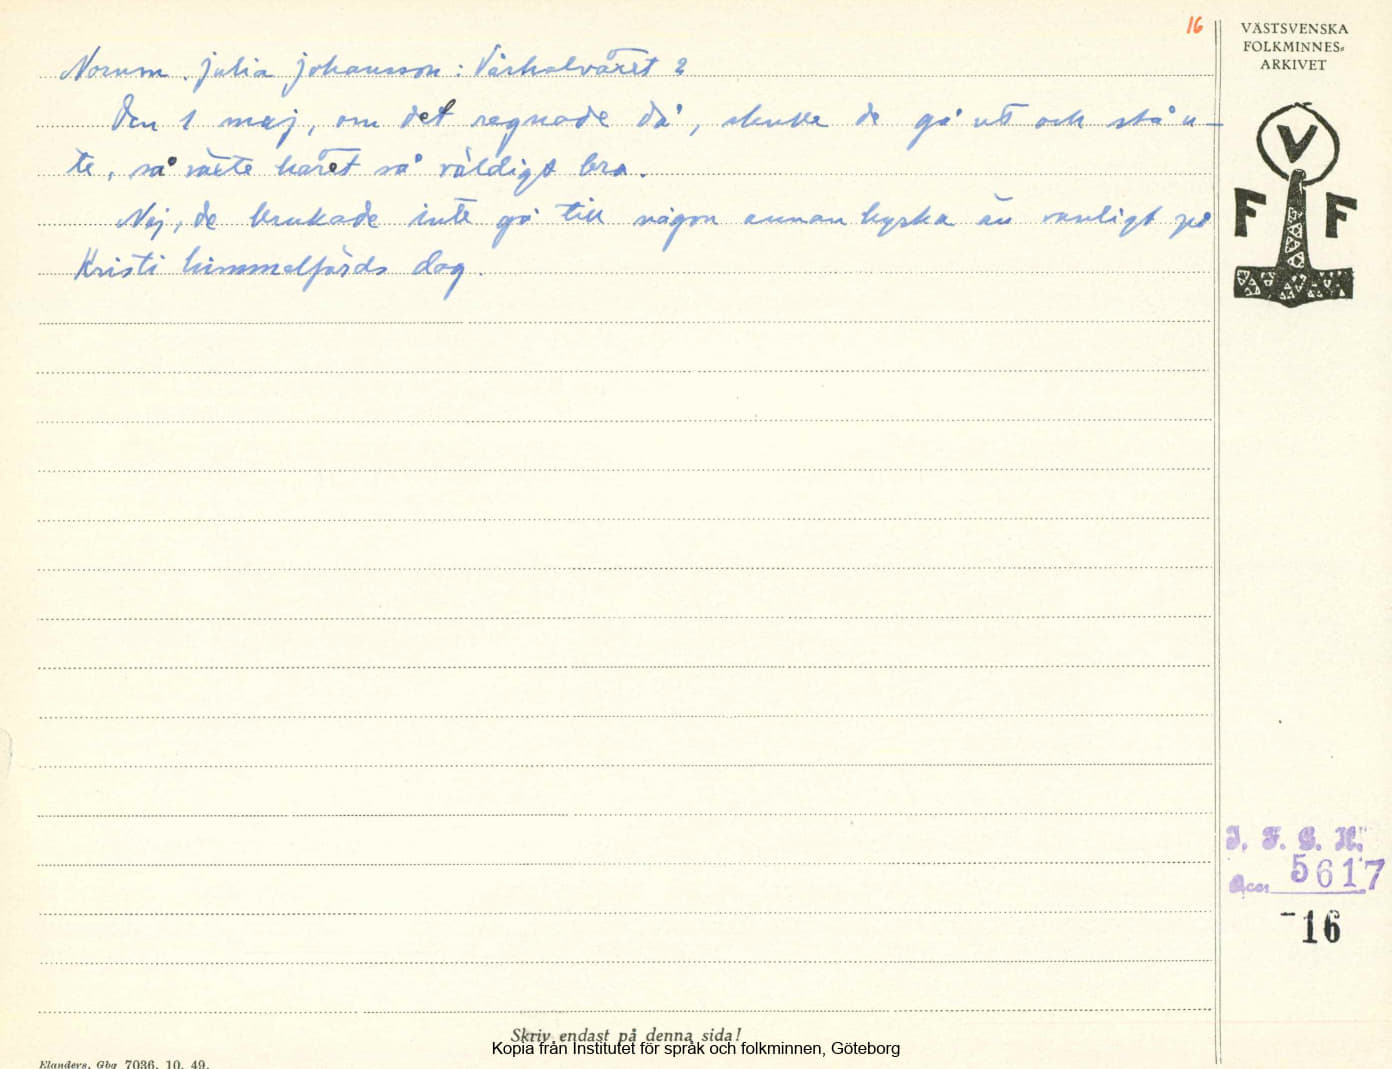 16
Norum. Julia Johansson: Vårhalvåret 2
Den 1 maj, om det regnade då, skulle de gå ut och stå u-
te, så växte håret så väldigt bra.
Nej, de brukade inte gå till någon annan kyrka än vanligt på
Kristi himmelfärds dag.
VÄSTSVENSKA
FOLKMINNES-
ARKIVET
V
F F
I. F. G. H.
Acc. 5617
-16
Skriv endast på denna sida!
Kopia från Institutet för språk och folkminnen, Göteborg
Elanders, Gbg 7036. 10. 49.